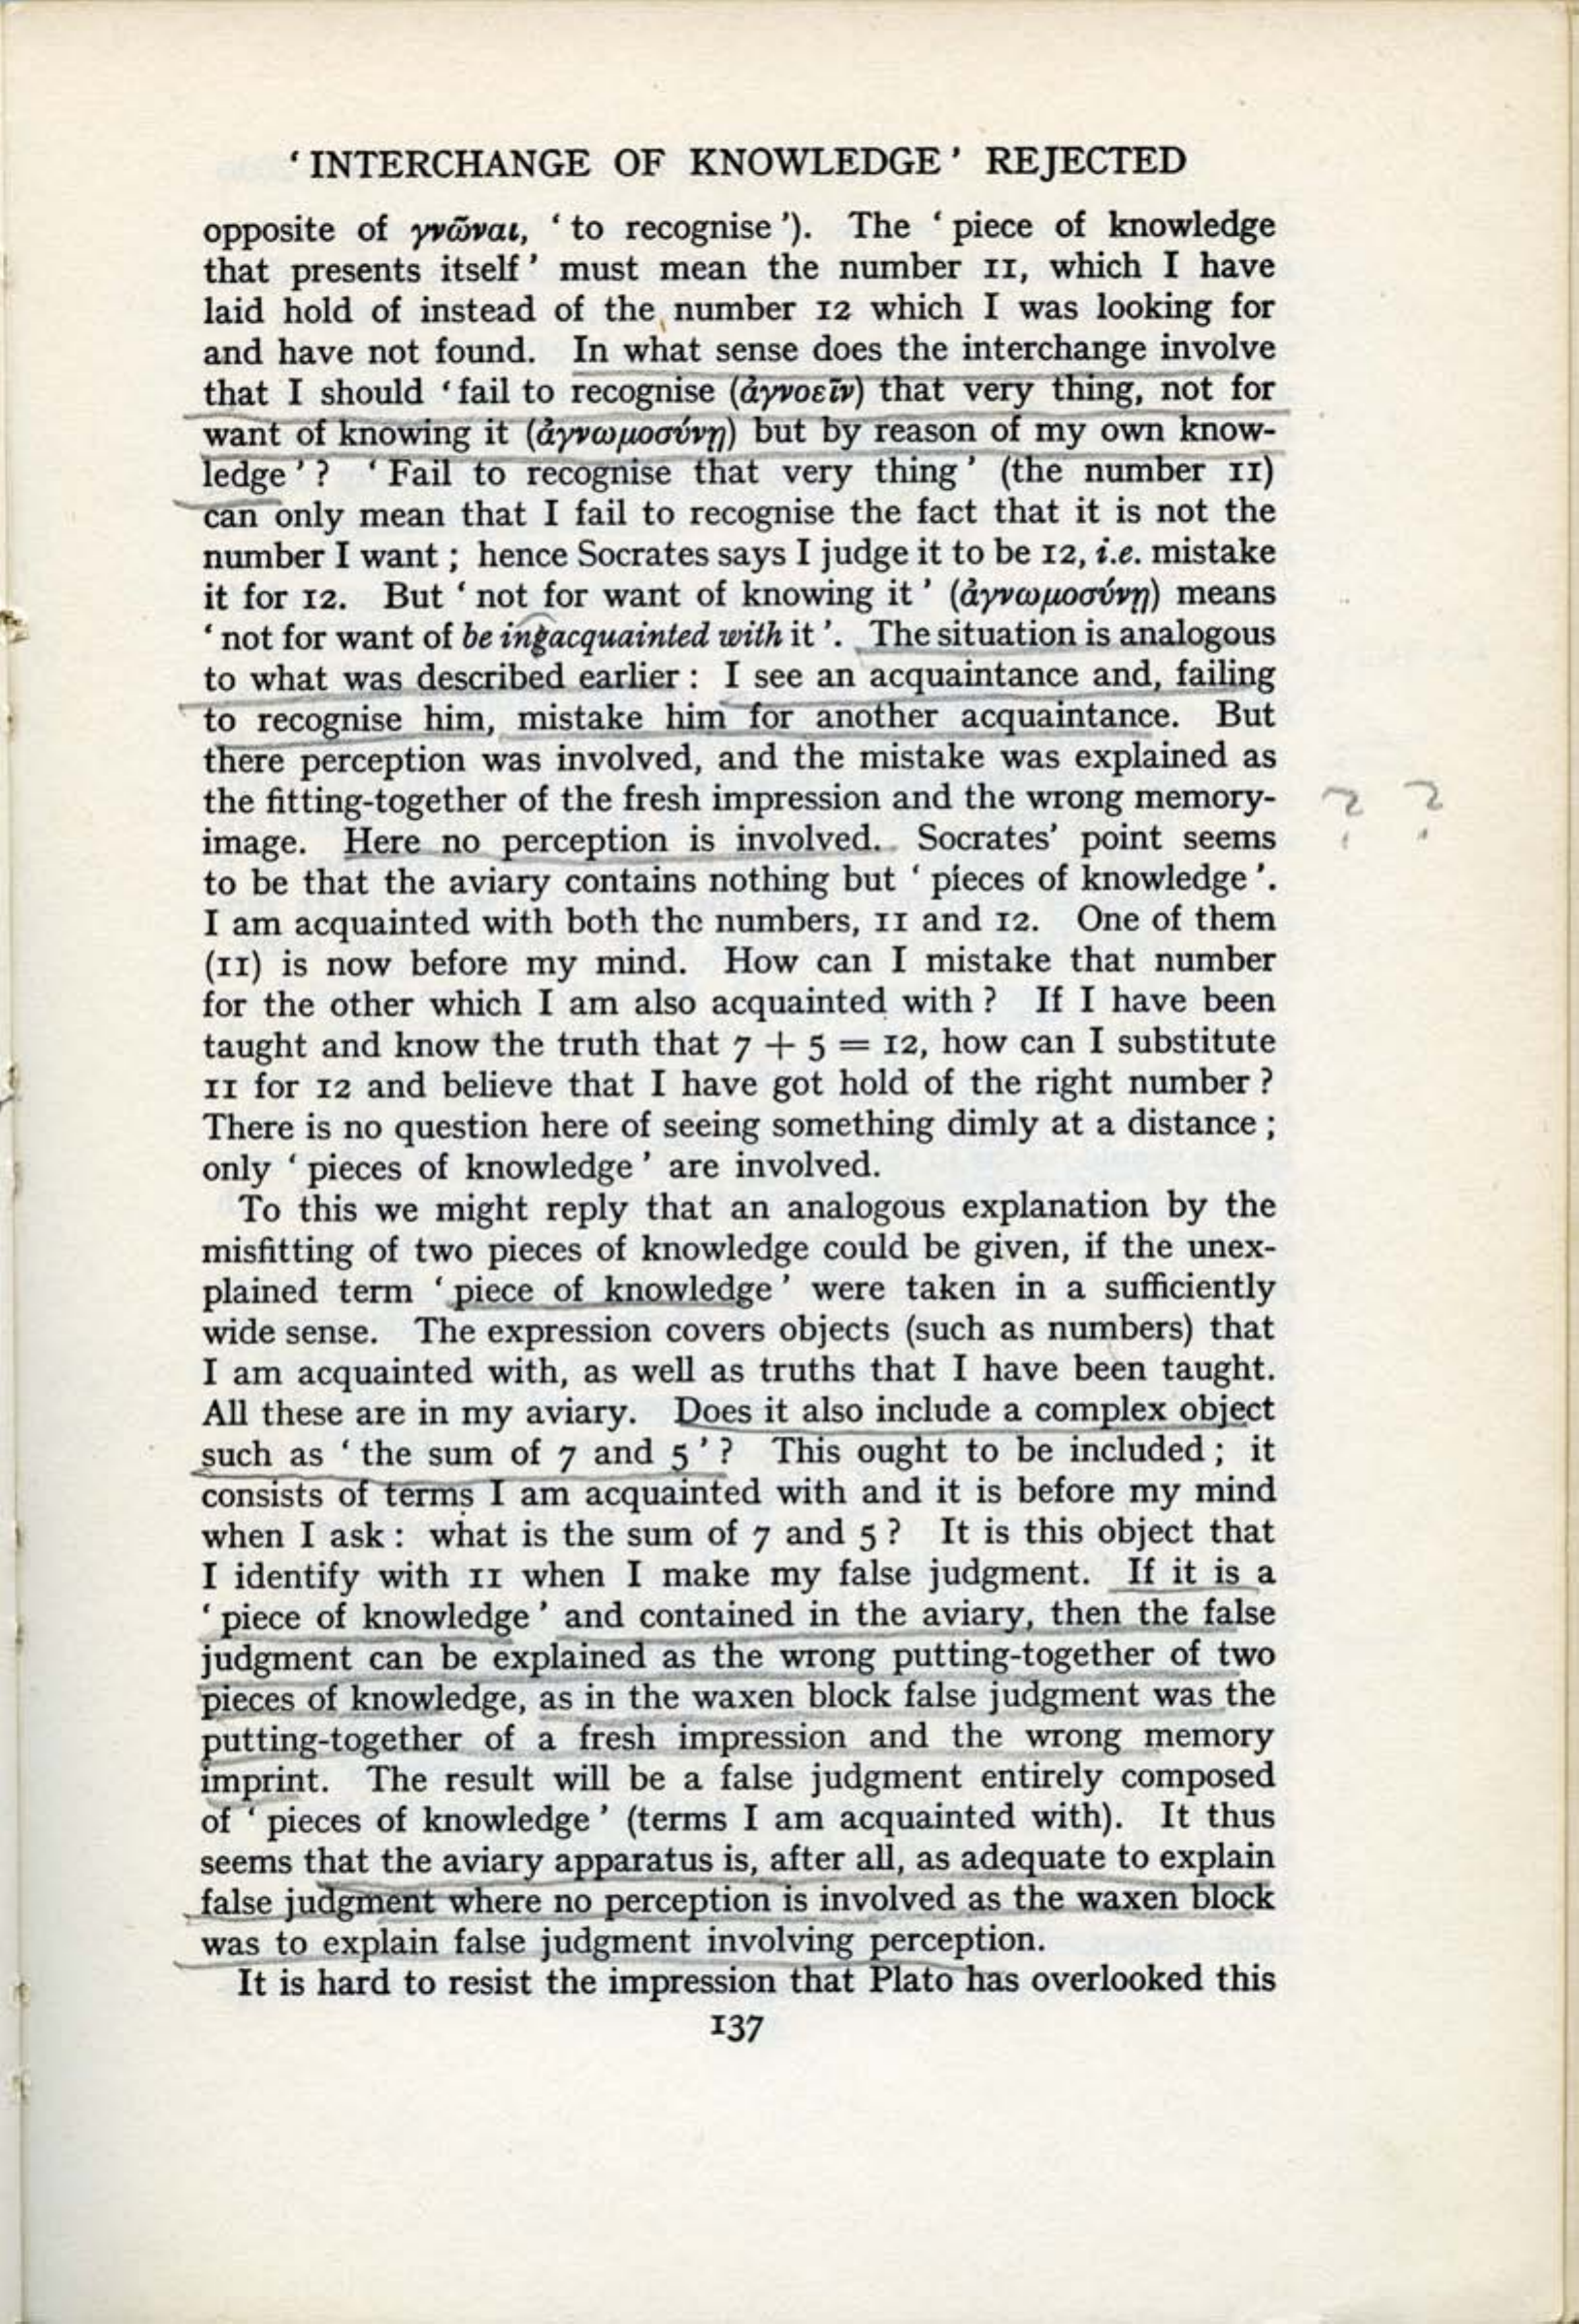 ‘ INTERCHANGE OF KNOWLEDGE ’ REJECTED
opposite of γνῶναι, ‘ to recognise ’). The ‘ piece of knowledge
that presents itself ’ must mean the number 11, which I have
laid hold of instead of the number 12 which I was looking for
and have not found. In what sense does the interchange involve
that I should ‘ fail to recognise (ἀγνοεῖν) that very thing, not for
want of knowing it (ἀγνωμοσύνῃ) but by reason of my own know-
ledge ’ ? ‘ Fail to recognise that very thing ’ (the number 11)
can only mean that I fail to recognise the fact that it is not the
number I want ; hence Socrates says I judge it to be 12, i.e. mistake
it for 12. But ‘ not for want of knowing it ’ (ἀγνωμοσύνῃ) means
‘ not for want of be ingacquainted with it ’. The situation is analogous
to what was described earlier : I see an acquaintance and, failing
to recognise him, mistake him for another acquaintance. But
there perception was involved, and the mistake was explained as
the fitting-together of the fresh impression and the wrong memory-
? ?
image. Here no perception is involved. Socrates’ point seems
to be that the aviary contains nothing but ‘ pieces of knowledge ’.
I am acquainted with both the numbers, 11 and 12. One of them
(11) is now before my mind. How can I mistake that number
for the other which I am also acquainted with ? If I have been
taught and know the truth that 7 + 5 = 12, how can I substitute
11 for 12 and believe that I have got hold of the right number ?
There is no question here of seeing something dimly at a distance ;
only ‘ pieces of knowledge ’ are involved.
To this we might reply that an analogous explanation by the
misfitting of two pieces of knowledge could be given, if the unex-
plained term ‘ piece of knowledge ’ were taken in a sufficiently
wide sense. The expression covers objects (such as numbers) that
I am acquainted with, as well as truths that I have been taught.
All these are in my aviary. Does it also include a complex object
such as ‘ the sum of 7 and 5 ’ ? This ought to be included ; it
consists of terms I am acquainted with and it is before my mind
when I ask : what is the sum of 7 and 5 ? It is this object that
I identify with 11 when I make my false judgment. If it is a
‘ piece of knowledge ’ and contained in the aviary, then the false
judgment can be explained as the wrong putting-together of two
pieces of knowledge, as in the waxen block false judgment was the
putting-together of a fresh impression and the wrong memory
imprint. The result will be a false judgment entirely composed
of ‘ pieces of knowledge ’ (terms I am acquainted with). It thus
seems that the aviary apparatus is, after all, as adequate to explain
false judgment where no perception is involved as the waxen block
was to explain false judgment involving perception.
It is hard to resist the impression that Plato has overlooked this
137